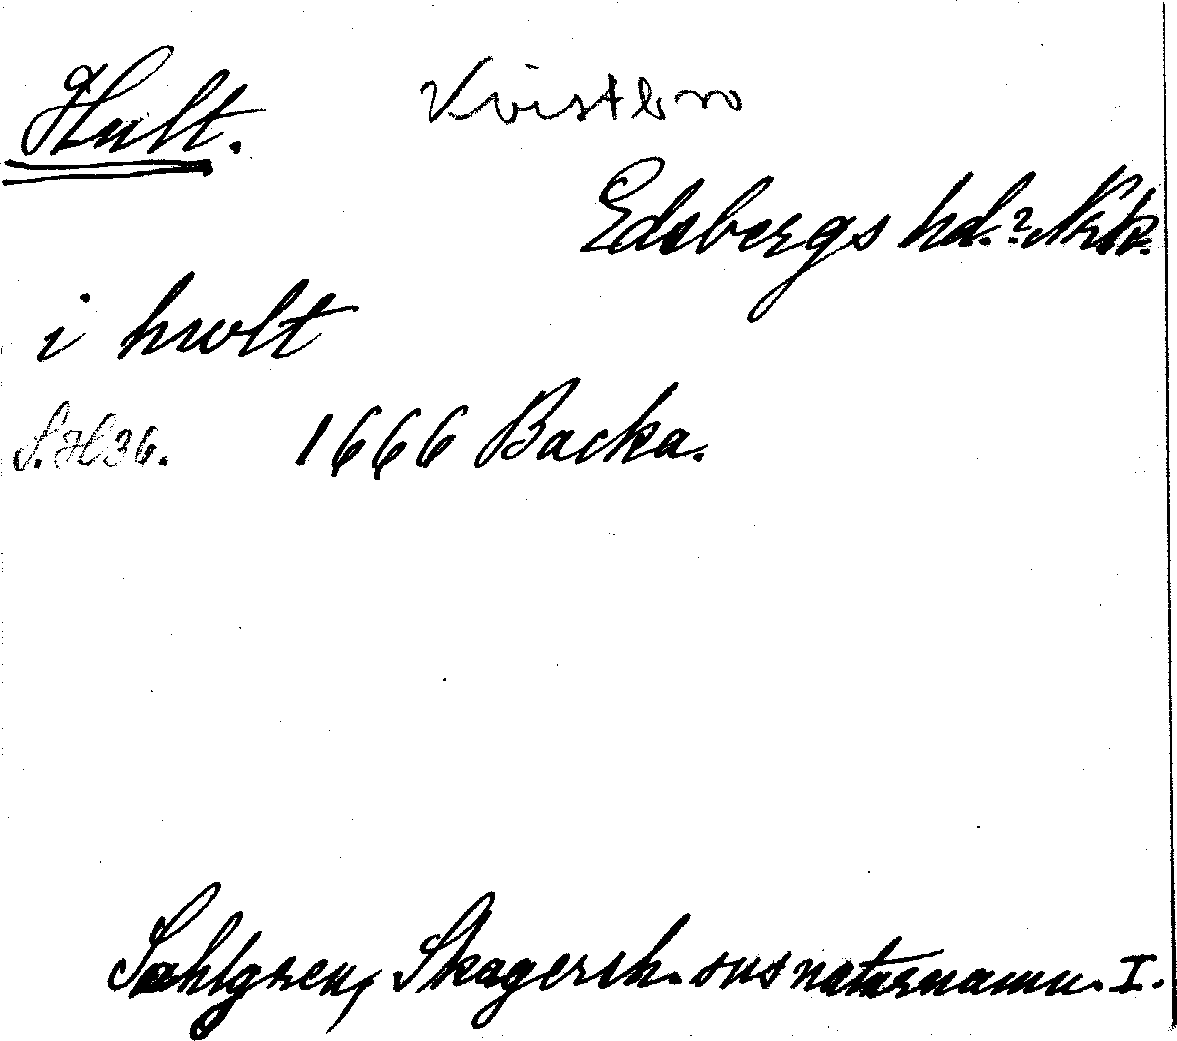 Hult. Kvistbro
Edsbergs hd. Nrk.
i hwlt
S. 36. 1666 Backa.
Sahlgren, Skagersh. sns naturnamn. I.